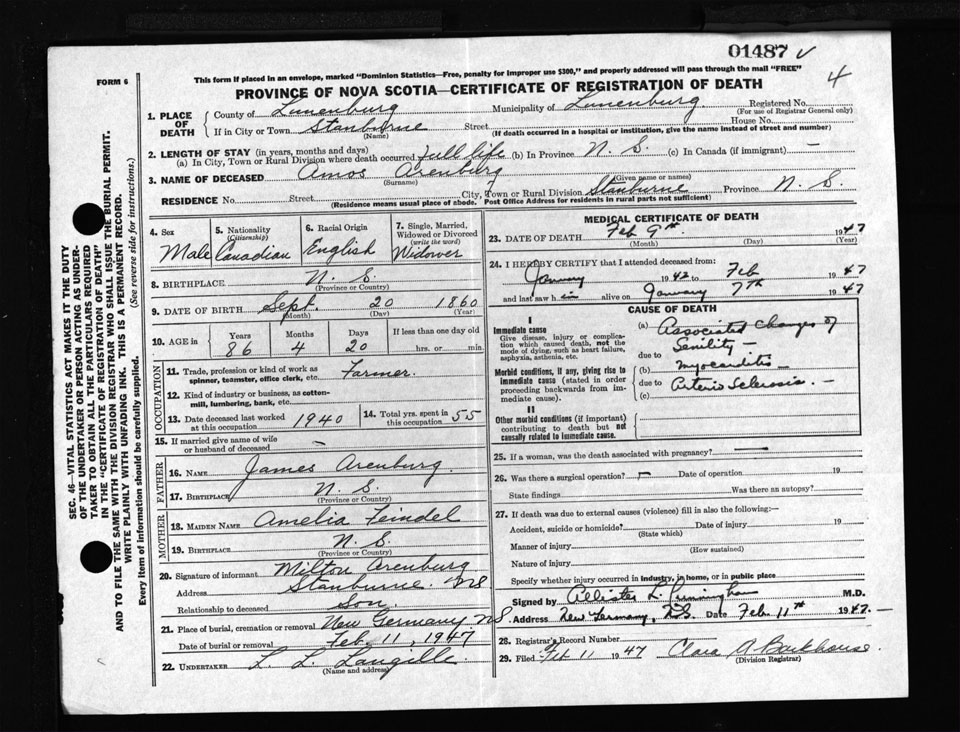 01487 ✓
4
FORM 6
This form if placed in an envelope, marked "Dominion Statistics—Free, penalty for improper use $300," and properly addressed will pass through the mail "FREE"
PROVINCE OF NOVA SCOTIA—CERTIFICATE OF REGISTRATION OF DEATH
SEC. 46—VITAL STATISTICS ACT MAKES IT THE DUTY
OF THE UNDERTAKER OR PERSON ACTING AS UNDER-
TAKER TO OBTAIN ALL THE PARTICULARS REQUIRED
IN THE "CERTIFICATE OF REGISTRATION OF DEATH"
AND TO FILE THE SAME WITH THE DIVISION REGISTRAR WHO SHALL ISSUE THE BURIAL PERMIT.
WRITE PLAINLY WITH UNFADING INK. THIS IS A PERMANENT RECORD.
Every item of information should be carefully supplied. (See reverse side for instructions.)
1. PLACE OF DEATH
County of Lunenburg Municipality of Lunenburg Registered No.
(For use of Registrar General only)
If in City or Town Stanburne Street House No.
(Name) (If death occurred in a hospital or institution, give the name instead of street and number)
2. LENGTH OF STAY (in years, months and days)
(a) In City, Town or Rural Division where death occurred full life (b) In Province N. S. (c) In Canada (if immigrant) —
3. NAME OF DECEASED Amos Arenburg
(Surname) (Given name or names)
RESIDENCE No. Street City, Town or Rural Division Stanburne Province N. S.
(Residence means usual place of abode. Post Office Address for residents in rural parts not sufficient)
4. Sex
Male
5. Nationality
(Citizenship)
Canadian
6. Racial Origin
English
7. Single, Married,
Widowed or Divorced
(write the word)
Widower
8. BIRTHPLACE N. S.
(Province or Country)
9. DATE OF BIRTH Sept. 20 1860
(Month) (Day) (Year)
10. AGE
Years Months Days If less than one day old
86 4 20 hrs. or min.
OCCUPATION
11. Trade, profession or kind of work as Farmer.
spinner, teamster, office clerk, etc.
12. Kind of industry or business, as cotton-
mill, lumbering, bank, etc.
13. Date deceased last worked
at this occupation 1940
14. Total yrs. spent in
this occupation 55
15. If married give name of wife
or husband of deceased —
FATHER
16. NAME James Arenburg.
17. BIRTHPLACE N. S.
(Province or Country)
MOTHER
18. MAIDEN NAME Amelia Feindel
19. BIRTHPLACE N. S.
(Province or Country)
20. Signature of informant Milton Arenburg
Address Stanburne. NS
Relationship to deceased Son.
21. Place of burial, cremation or removal New Germany NS
Date of burial or removal Feb. 11, 1947
22. UNDERTAKER L. L. Langille.
(Name and address)
MEDICAL CERTIFICATE OF DEATH
23. DATE OF DEATH Feb 9th 1947
(Month) (Day) (Year)
24. I HEREBY CERTIFY that I attended deceased from:
January 1942 to Feb 1947
and last saw him alive on January 7th 1947
CAUSE OF DEATH
I
Immediate cause
Give disease, injury or complica-
tion which caused death, not the
mode of dying, such as heart failure,
asphyxia, asthenia, etc.
Morbid conditions, if any, giving rise to
immediate cause (stated in order
proceeding backwards from im-
mediate cause).
II
Other morbid conditions (if important)
contributing to death but not
causally related to immediate cause.
(a) Associated Changes of
Senility —
due to
(b) myocarditis
due to Arterio Sclerosis. —
(c)
25. If a woman, was the death associated with pregnancy? —
26. Was there a surgical operation? — Date of operation 19
State findings Was there an autopsy?
27. If death was due to external causes (violence) fill in also the following:—
Accident, suicide or homicide? Date of injury 19
(State which)
Manner of injury
(How sustained)
Nature of injury
Specify whether injury occurred in industry, in home, or in public place
Signed by Allister L. Cunningham M.D.
Address New Germany, N.S. Date Feb 11th 1947.—
28. Registrar's Record Number
29. Filed Feb 11 1947 Clara A Barkhouse.
(Division Registrar)